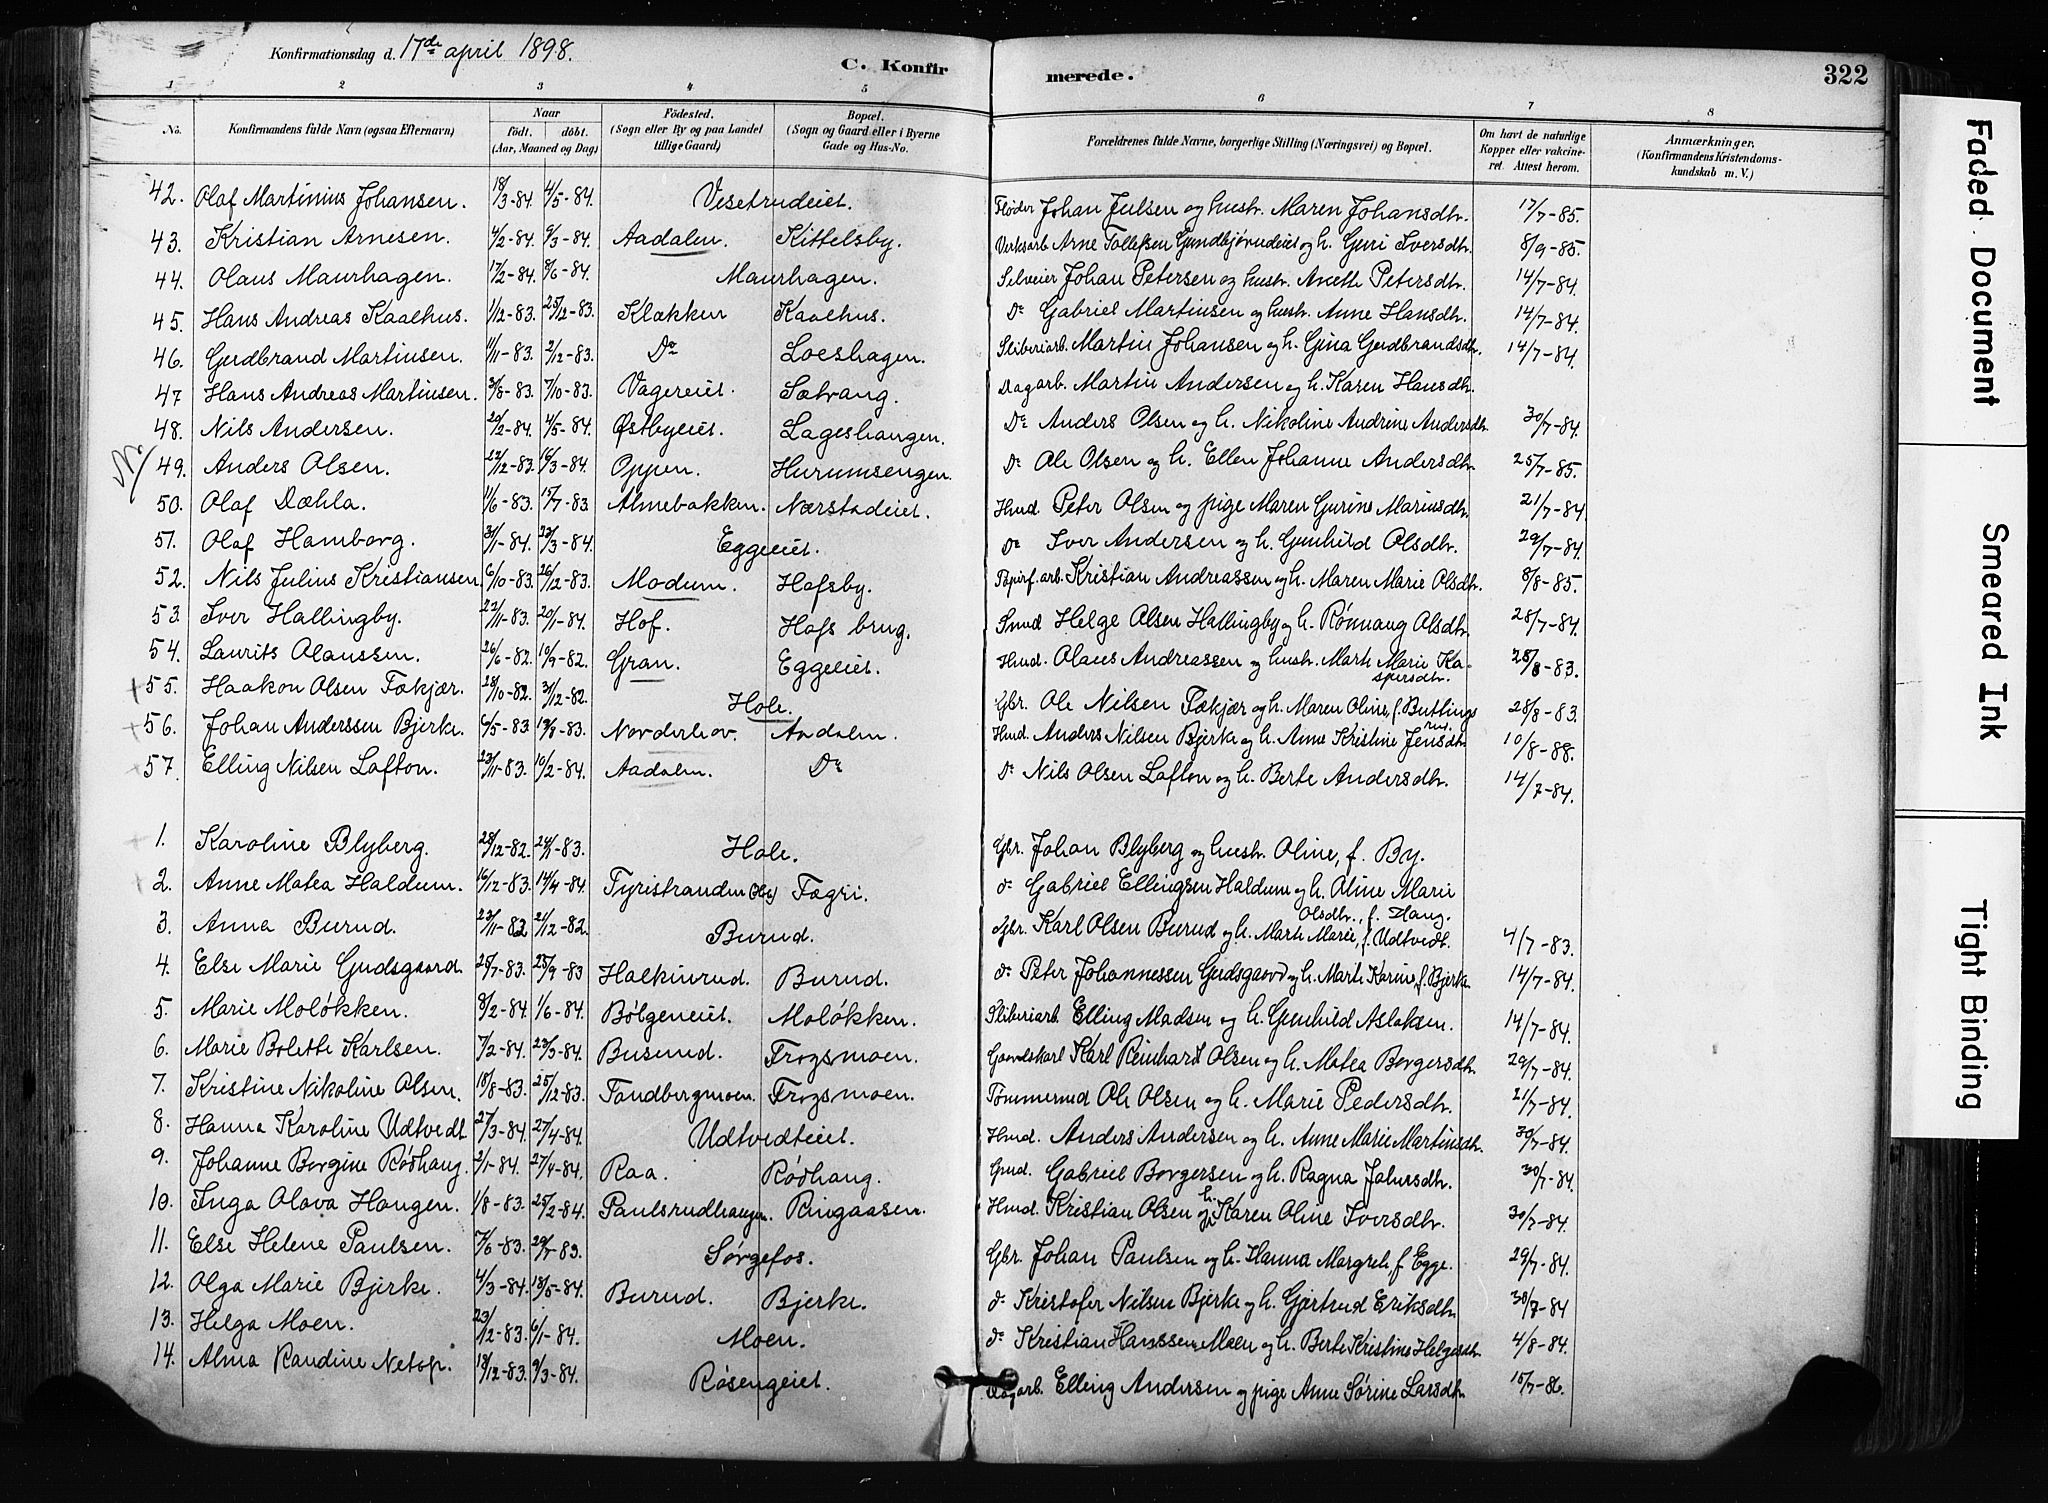 Konfirmationsdag d. 17de april 1898.
C. Konfirmerede.
322
1 2 3 4 5 6 7 8
No. Konfirmandens fulde Navn (ogsaa Efternavn) Naar født. døbt. (Aar, Maaned og Dag) Fødested. (Sogn eller By og paa Landet tillige Gaard) Bopæl. (Sogn og Gaard eller i Byerne Gade og Hus-No. Forældrenes fulde Navne, borgerlige Stilling (Næringsvei) og Bopæl. Om havt de naturlige Kopper eller vakcineret. Attest herom. Anmærkninger. (Konfirmandens Kristendomskundskab m. V.)
42. Olaf Martinius Johansen. 18/3-84. 4/5-84. Vesetrudeiet. Fløder Johan Julsen og hustr. Maren Johansdtr. 17/7-85.
43. Kristian Arnesen. 4/2-84. 9/3-84. Aadalen. Kittelsby. Verksarb. Arne Tollefsen Gundbjørnudeiet og h. Guri Iversdtr. 8/9-85.
44. Olaus Maurhagen. 17/2-84. 8/6-84. Maurhagen. Selveier Johan Petersen og hustr. Anette Petersdtr. 14/7-84.
45. Hans Andreas Kaalhus. 1/12-83. 25/12-83. Klækken Kaalhus. Do Gabriel Martinsen og hustr. Anne Hansdtr. 14/7-84.
46. Gudbrand Martinsen. 11/11-83. 2/12-83. Do Loeshagen. Sliberiarb. Martin Johansen og h. Gina Gudbrandsdtr. 14/7-84.
47 Hans Andreas Martinsen. 31/8-83. 7/10-83. Vagereiet. Sætrang. Dagarb. Martin Andersen og h. Karen Hansdtr.
48. Nils Andersen. 20/2-84. 4/5-84. Østbyeiet. Lageshaugen. Do Anders Olsen og h. Nikoline Andrine Andersdtr. 30/7-84.
49. Anders Olsen. 22/12-83. 16/3-84. Oppen. Hurumsengen. Do Ole Olsen og h. Ellen Johanne Andersdtr. 25/7-85.
50. Olaf Dæhla. 11/6-83. 15/7-83. Almebakken. Nærstadeiet. Hmd. Peter Olsen og pige Maren Gurine Mariusdtr. 21/7-84.
51. Olaf Hamborg. 31/1-84. 23/3-84. Eggeeiet. Do Iver Andersen og h. Gunhild Olsdtr. 29/7-84.
52. Nils Julius Kristiansen 6/10-83. 26/12-83. Modum. Hofsby. Papirf.arb. Kristian Andreassen og h. Maren Marie Olsdtr. 8/8-85.
53. Iver Hallingby. 22/11-83. 20/1-84. Hof. Hofs brug. Smed Helge Olsen Hallingby og h. Rønnaug Olsdtr. 28/7-84.
54. Laurits Olaussen. 26/6-82. 10/9-82. Gran. Eggeeiet. Hmd. Olaus Andreassen og hustr. Marte Marie Kaspersdtr. 28/8-83.
55. Haakon Olsen Fækjær. 28/10-82. 31/12-82. Hole. Gbr. Ole Nilsen Fækjær og h. Maren Oline, f. Butlingsrud. 28/8-83.
56. Johan Anderssen Bjerke. 6/5-83. 19/8-83. Norderhov. Aadalen. Hmd. Anders Nilsen Bjerke og h. Anne Kristine Jensdtr. 10/8-88.
57. Elling Nilsen Lafton. 23/11-83. 10/2-84. Aadalen. Do Do Nils Olsen Lafton og h. Berte Andersdtr. 14/7-84.
1. Karoline Blyberg. 28/12-82. Hole. Gbr. Johan Blyberg og hustr. Oline, f. By.
2. Anne Matea Haldum. 16/12-83. 14/4-84. Tyristranden (Hole) Fægri. do Gabriel Ellingsen Haldum og h. Oline Marie Olsdtr., f. Haug.
3. Anna Burud. 23/11-82 21/12-82. Burud. Gbr. Karl Olsen Burud og h. Marte Marie, f. Udtvedt. 4/7-83.
4. Else Marie Gudsgaard. 23/9-83 Halkinrud. Burud. do Peter Johannessen Gudsgaard og h. Marte Karine, f. Bjerke. 14/7-84.
5. Marie Moløkken. 8/2-84. 1/6-84. Bølgeneiet. Moløkken. Sliberiarb. Elling Madsen og h. Gunhild Aslaksen. 14/7-84.
6. Marie Bolette Karlsen. 7/2-84. 23/3-84. Busund. Frogsmoen. Gaardskarl Karl Reinhard Olsen og h. Matea Borgersdtr. 29/7-84.
7. Kristine Nikoline Olsen. 18/8-83. 25/12-83. Tandbergmoen. Frogsmoen. Tømmermd Ole Olsen og h. Marie Pedersdtr. 21/7-84.
8. Hanna Karoline Udtvedt 27/3-84. 27/4-84. Udtvedteiet. Hmd. Anders Andersen og h. Anne Marie Martinsdtr. 30/7-84.
9. Johanne Borgine Rødhaug. 2/1-84. 27/4-84. Raa. Rødhaug. Gmd. Gabriel Borgersen og h. Ragna Johnsdtr. 30/7-84.
10. Inga Olava Haugen. 1/8-83. 25/2-84. Paulsrudhaugen. Ringaasen. Hmd. Kristian Olsen og h. Karen Oline Iversdtr. 30/7-84.
11. Else Helene Paulsen. 7/6-83. Sørgefos. Gbr. Johan Paulsen og h. Hanna Margrete, f. Egge. 29/7-84.
12. Olga Marie Bjerke. 4/3-84. 18/5-84. Burud. Bjerke. do Kristofer Nilsen Bjerke og h. Gjertrud Eriksdtr. 30/7-84
13. Helga Moen. 23/12-83. 6/1-84. Moen. do Kristian Hanssen Moen og h. Berte Kristine Helgesdtr. 4/8-84.
14. Alma Randine 18/12-83. 9/3-84. Røsengeiet. Dagarb. Elling Andersen og pige Anne Sørine Larsdtr. 15/7-86.
Faded Document
Smeared Ink
Tight Binding